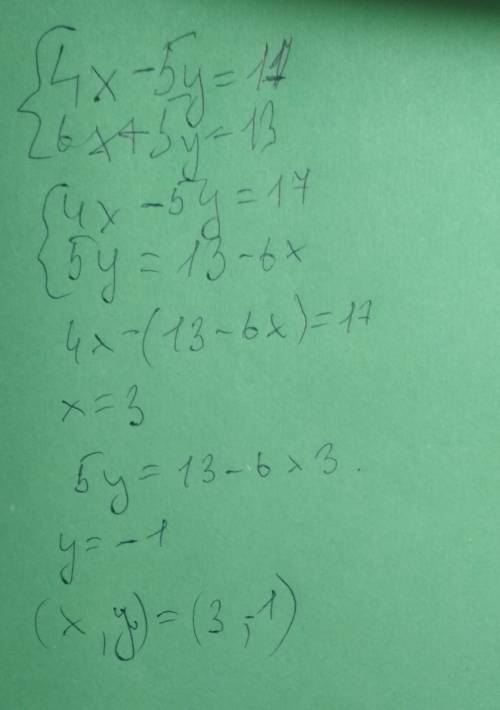 4x - 5y = 17
6x + 5y = 13
4x - 5y = 17
5y = 13 - 6x
4x - (13 - 6x) = 17
x = 3
5y = 13 - 6 × 3.
y = -1
(x, y) = (3, -1)